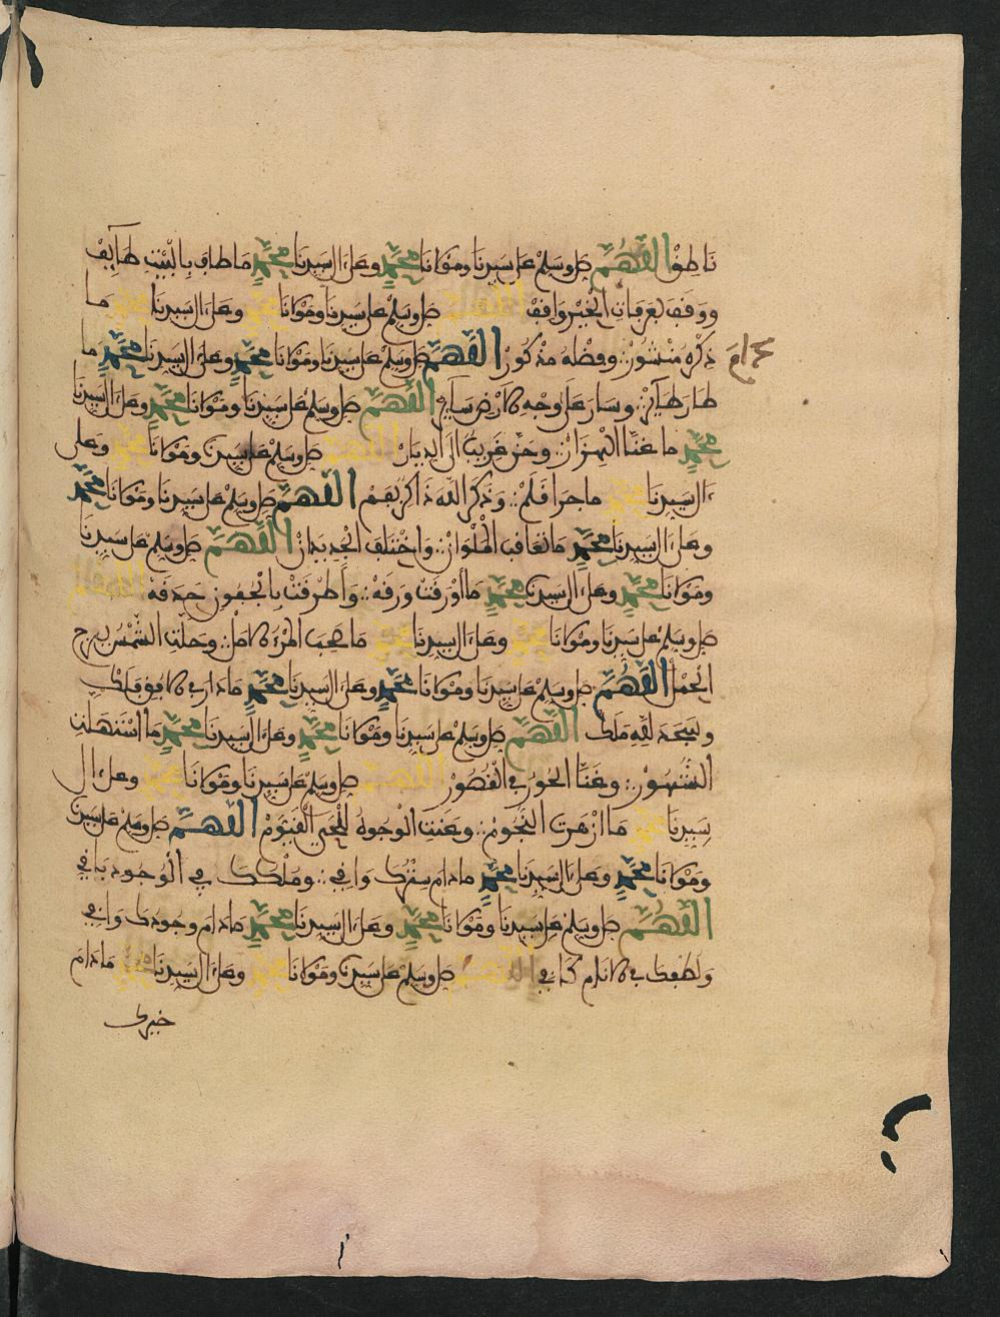 ناطق اللهم صل وسلم على سيدنا ومولانا محمد وعلى ءال سيدنا محمد ما طاف بالبيت طآيف
ووقف بعرفات الخير واقف اللهم صل وسلم على سيدنا ومولانا محمد وعلى ءال سيدنا محمد ما
ذكره منشور وفضله مذكور اللهم صل وسلم على سيدنا ومولانا محمد وعلى ءال سيدنا محمد ما
طار طآير وسار على وجه الارض سآير اللهم صل وسلم على سيدنا ومولانا محمد وعلى ءال سيدنا
محمد ما غنا الهزار وحن غريب الى الديار اللهم صل وسلم على سيدنا ومولانا محمد وعلى
ءال سيدنا محمد ما جرا قلم وذكر الله ذاكر بفم اللهم صل وسلم على سيدنا ومولانا محمد
وعلى ءال سيدنا محمد ما تعاقب الملوان واختلف الجديدان اللهم صل وسلم على سيدنا
ومولانا محمد وعلى ءال سيدنا محمد ما اورقت ورقة واطرفت بالجفون حدقة اللهم
صل وسلم على سيدنا ومولانا محمد وعلى ءال سيدنا محمد ما صحب المرء الامل وحلت الشمس برج
الحمل اللهم صل وسلم على سيدنا ومولانا محمد وعلى ءال سيدنا محمد ما دار في الافق فلك
وسجد لله ملك اللهم صل وسلم على سيدنا ومولانا محمد وعلى ءال سيدنا محمد ما استهلت
الشهور وغنا الحور في القصور اللهم صل وسلم على سيدنا ومولانا محمد وعلى ءال
سيدنا محمد ما ازهرت النجوم وعنت الوجوه للحي القيوم اللهم صل وسلم على سيدنا
ومولانا محمد وعلى ءال سيدنا محمد ما دام سترك وافي وملكك في الوجود بافي
اللهم صل وسلم على سيدنا ومولانا محمد وعلى ءال سيدنا محمد ما دام وجودك وافي
ولطفك في الانام كافي اللهم صل وسلم على سيدنا ومولانا محمد وعلى ءال سيدنا محمد ما دام
خيرك